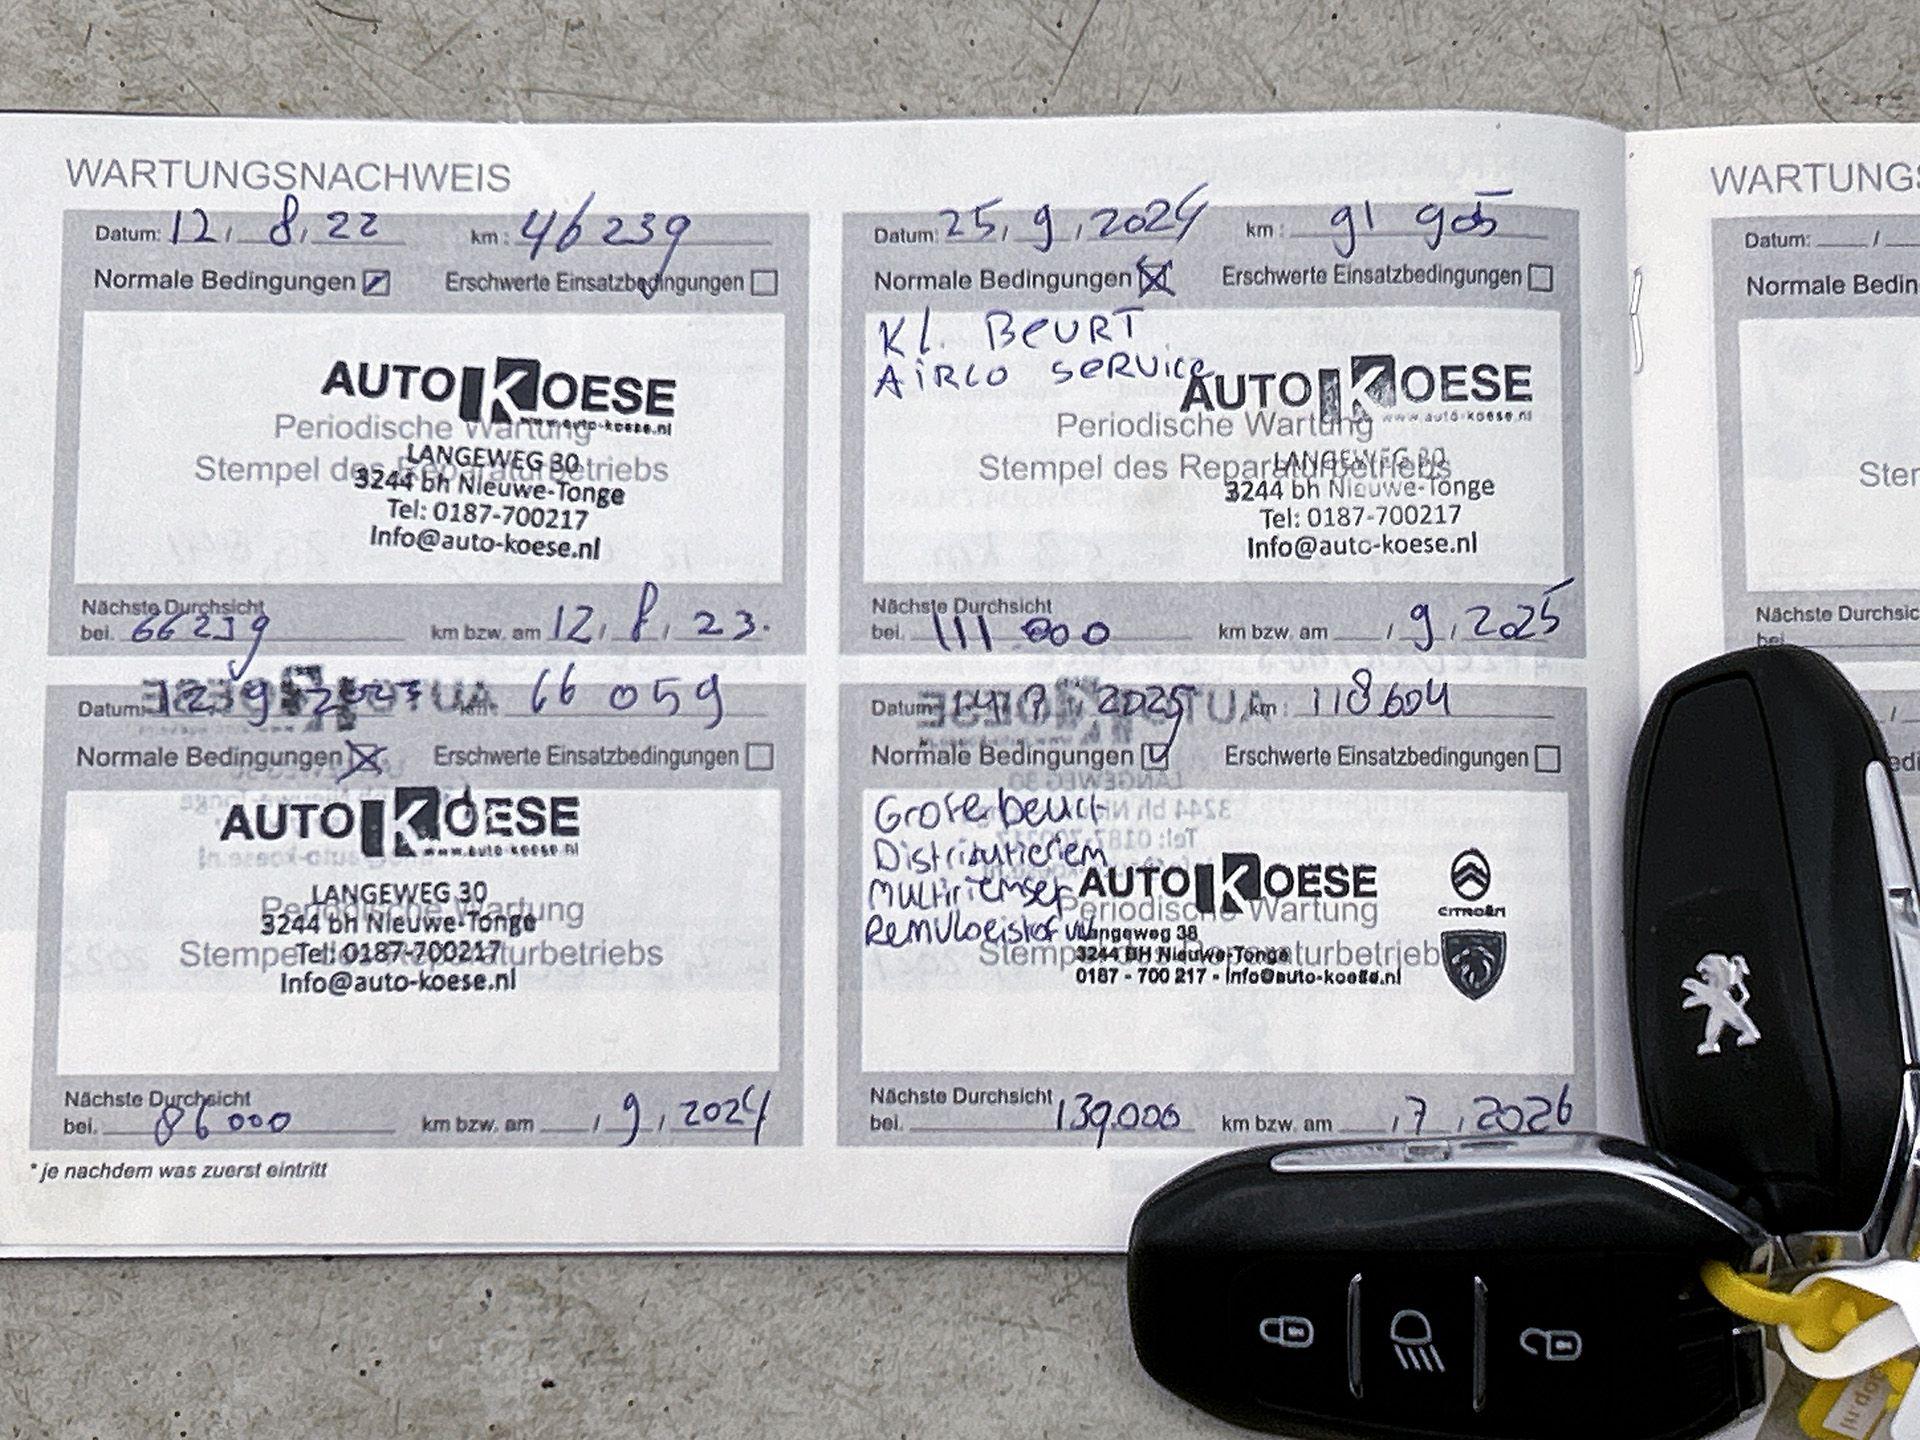 WARTUNGSNACHWEIS
Datum: 12 / 8 / 22 km : 46239
Normale Bedingungen Erschwerte Einsatzbedingungen
AUTO KOESE
www.auto-koese.nl
Periodische Wartung
LANGEWEG 30
Stempel des Reparaturbetriebs
3244 bh Nieuwe-Tonge
Tel: 0187-700217
Info@auto-koese.nl
Nächste Durchsicht
bei. 66239 km bzw. am 12 / 8 / 23.
Datum: 12 / 9 / 2023 km : 66 059
Normale Bedingungen Erschwerte Einsatzbedingungen
AUTO KOESE
www.auto-koese.nl
LANGEWEG 30
Periodische Wartung
3244 bh Nieuwe-Tonge
Stempel des Reparaturbetriebs
Tel: 0187-700217
Info@auto-koese.nl
Nächste Durchsicht
bei. 86000 km bzw. am / 9 / 2024
* je nachdem was zuerst eintritt
Datum: 25 / 9 / 2024 km : 91 905
Normale Bedingungen Erschwerte Einsatzbedingungen
Kl. BEURT
AIRCO SERVICE
AUTO KOESE
www.auto-koese.nl
Periodische Wartung
LANGEWEG 30
Stempel des Reparaturbetriebs
3244 bh Nieuwe-Tonge
Tel: 0187-700217
Info@auto-koese.nl
Nächste Durchsicht
bei. 111 000 km bzw. am / 9 / 2025
Datum: 2025 km : 118604
Normale Bedingungen Erschwerte Einsatzbedingungen
Grote beurt
Distributieriem
Multiriemset
Remvloeistof
AUTO KOESE
CITROËN
Periodische Wartung
Langeweg 38
Stempel des Reparaturbetriebs
3244 BH Nieuwe-Tonge
0187 - 700 217 - Info@auto-koese.nl
Nächste Durchsicht
bei. 139.000 km bzw. am / 7 / 2026
WARTUNGS
Datum: /
Normale Bedin
Nächste Durchsic
bei.